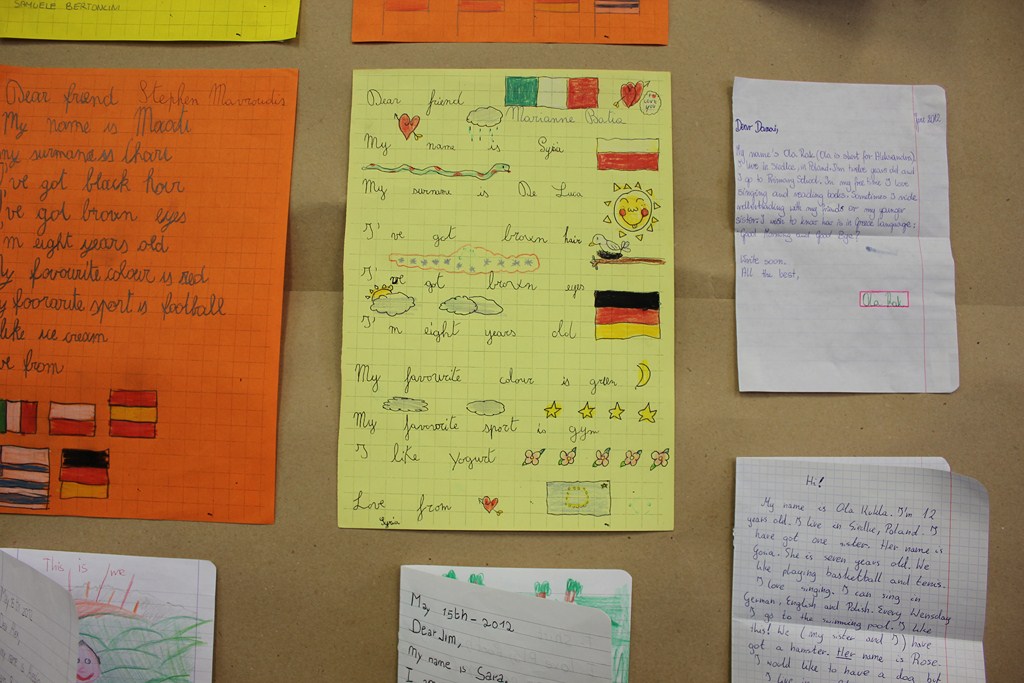 SAMUELE BERTONCINI
Dear friend Stephen Mavroudis
My name is
my surname is
I've got black hair
I've got brown eyes
I'm eight years old
My favourite colour is red
My foovavite sport is football
I like ice cream
ve from
Dear friend
I love you
Marianne Batia
My name is Syria
My surname is De Luca
I've got brown hair
I've got brown eyes
I'm eight years old
My favourite colour is green
My favorite sport is gym
I like Yogurt
Love from
Syria
June 2012
Dear Danai,
My name's Ola Kukla (Ola is short for Aleksandra).
I live in Siedlce, in Poland. I'm twelve years old and
I go to Primary School. In my free time I love
singing and reading books. Sometimes I ride
with my friends or my younger
sister. I wish to know how is in Greece language:
Good Morning and Good Bye?
Write soon.
All the best,
Ola
Hi!
My name is Ola Kukla. I'm 12
years old. I live in Siedlce, Poland. I
have got one sister. Her name is
She is seven years old. We
like playing basketball and tenis.
I love singing. I can sing in
German, English and Polish. Every Wensday
I go to the swimming pool. I like
this! We (my sister and I) have
got a hamster. Her name is Rose.
I would like to have a dog but
This is me
May 15th-2012
Dear Jim,
My name is Sara.
I